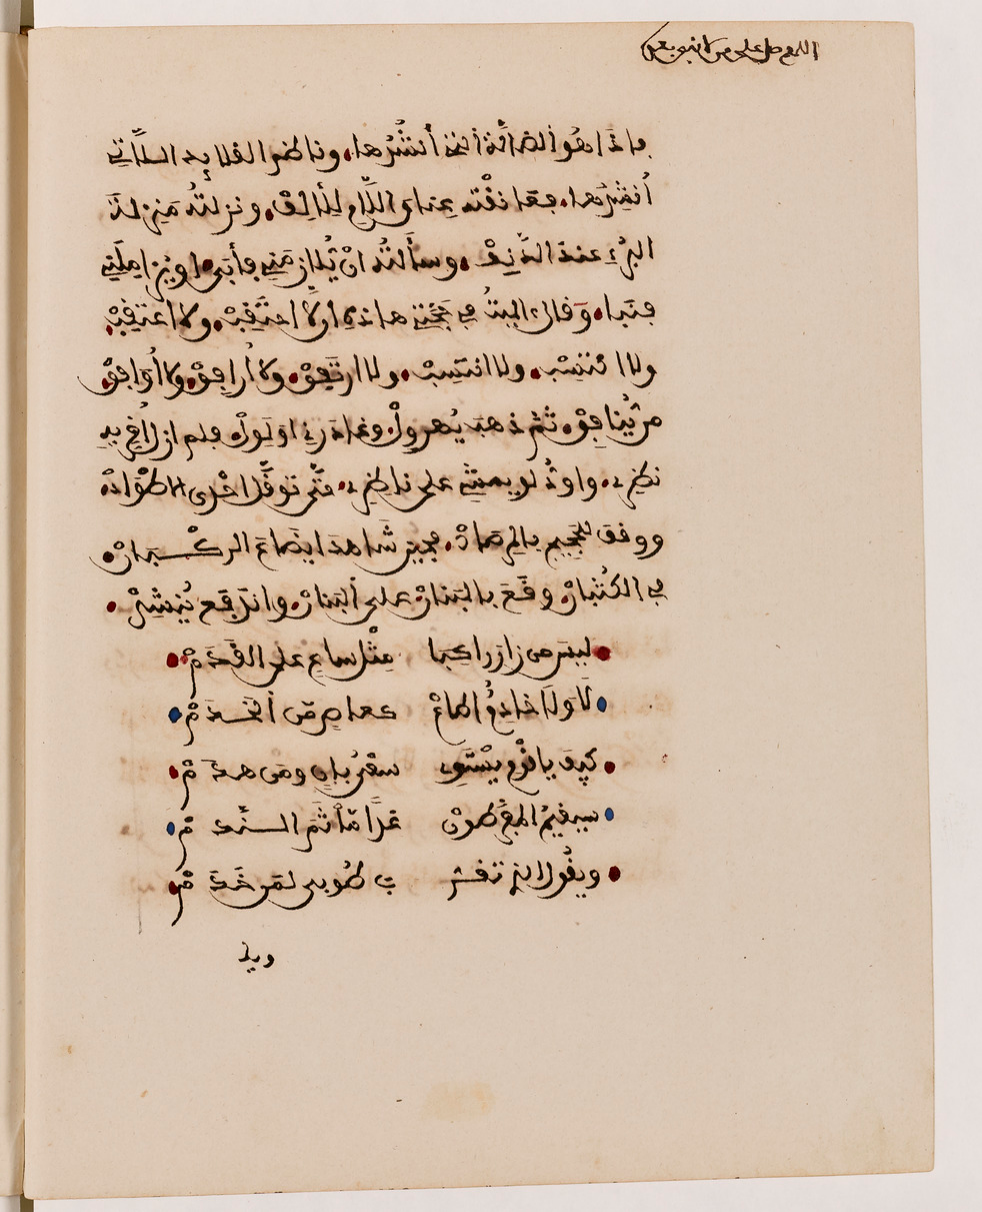 اللهم صل على من لا نبي بعده
فإذَا هُو الضالَّة التي أنشُدُها. وناظم القلائد اللَّاتي
أُنشِدُها. فعَانقْته عناق اللَّام لِلْألِفْ. ونزلتُه مَنزِلةَ
البُرْءِ عندَ الدَّنِفْ. وسألتُه انْ يُلازِمَني فأبَى. او يُزامِلَني
فنَبا. وَقال ءاليتُ في حَجَّتي هاذه ان لا احتَقِبْ. ولا اعتقِبْ.
ولا اكتسِبْ. ولا انتَسِبْ. ولا ارتَفِقْ. ولا أُرافِقْ. ولا أُوَافِقْ
من يُنافِقْ. ثم ذهبَ يُهرولْ. وغادَرني اوَلوِلْ. فلم ازل اُقرِيه
نظرِي. واودُّ لو يمشي على ناظرِي. حتَّى توقَّل احْدى الاطْوَادْ.
ووقف للحَجيج بالمِرصادْ. فحين شَاهدَ ايضَاعَ الركْبَانْ.
في الكُثْبانْ. وقَعَ بالبَنانْ. على ألبَنانْ. واندَفَع يُنشِدْ.
ليسَ من زارَ راكِبا مثْل ساعٍ على القَدَمْ
لَا وَلَا خادِمٌ اطاعْ كعاصٍ مّن ألخَدَمْ
كيفَ يا قوْم يسْتَوِي سعْيُ بانٍ ومَن هدَمْ
سيقيمُ المفَرِّطونْ غدًا مّأتَمَ النَّدمْ
ويقُول الذِي تقرَّ ب طُوبى لمَن خَدَمْ
ويك